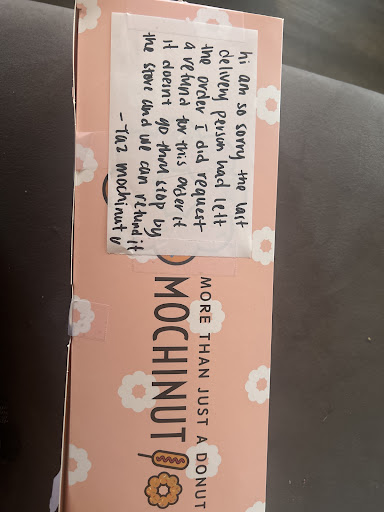 hi am so sorry the last
delivery person had left
the order I did request
a refund for this order if
it doesn't go thru stop by
the store and we can refund it
- Taz mochinut u
MORE THAN JUST A DONUT
MOCHINUT